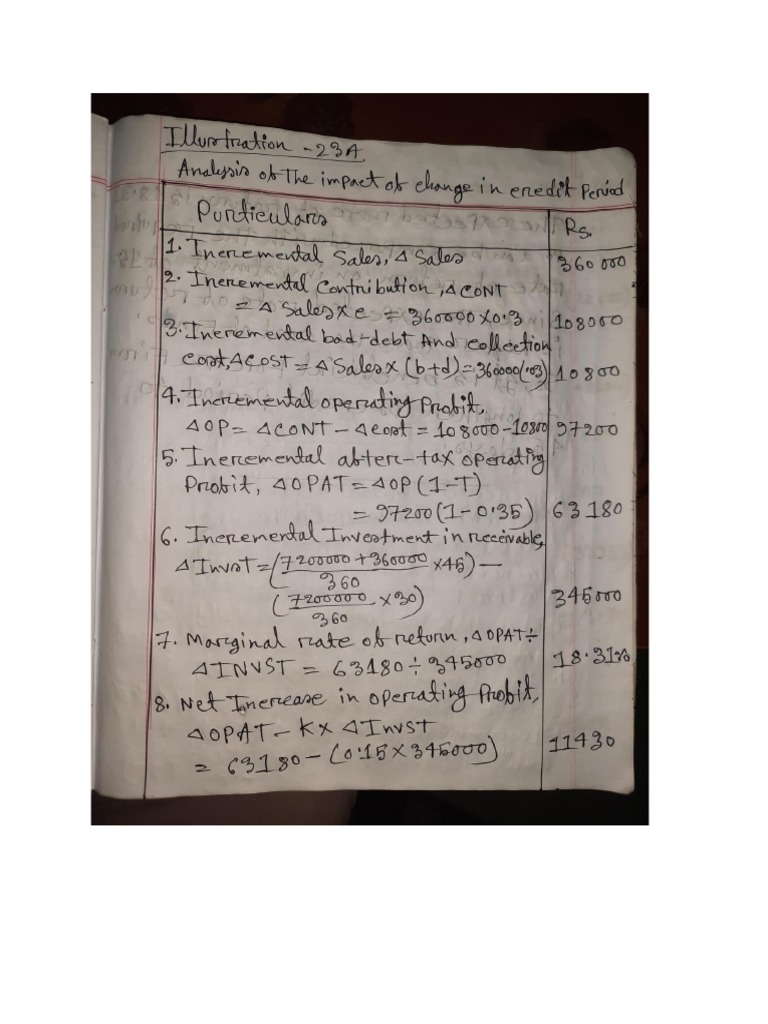 Illustration - 23A
Analysis of The impact of change in credit Period
Particulars Rs.
1. Incremental Sales, Δ Sales 360 000
2. Incremental Contribution, ΔCONT
= Δ Sales x c = 360000 X 0.3 108000
3. Incremental bad-debt And collection
cost, ΔCOST = Δ Sales x (b+d) = 360000(.03) 10 800
4. Incremental operating Profit,
ΔOP = ΔCONT - Δcost = 108000 - 10800 97200
5. Incremental after-tax operating
Profit, ΔOPAT = ΔOP (1-T)
= 97200 (1 - 0.35) 63180
6. Incremental Investment in receivable,
ΔInvst = (7200000 + 360000 / 360 x 45) —
(7200000 / 360 x 30) 345000
7. Marginal rate of return, ΔOPAT ÷
ΔINVST = 63180 ÷ 345000 18.31%
8. Net Increase in operating Profit,
ΔOPAT - K x ΔInvst
= 63180 - (0.15 X 345000) 11430